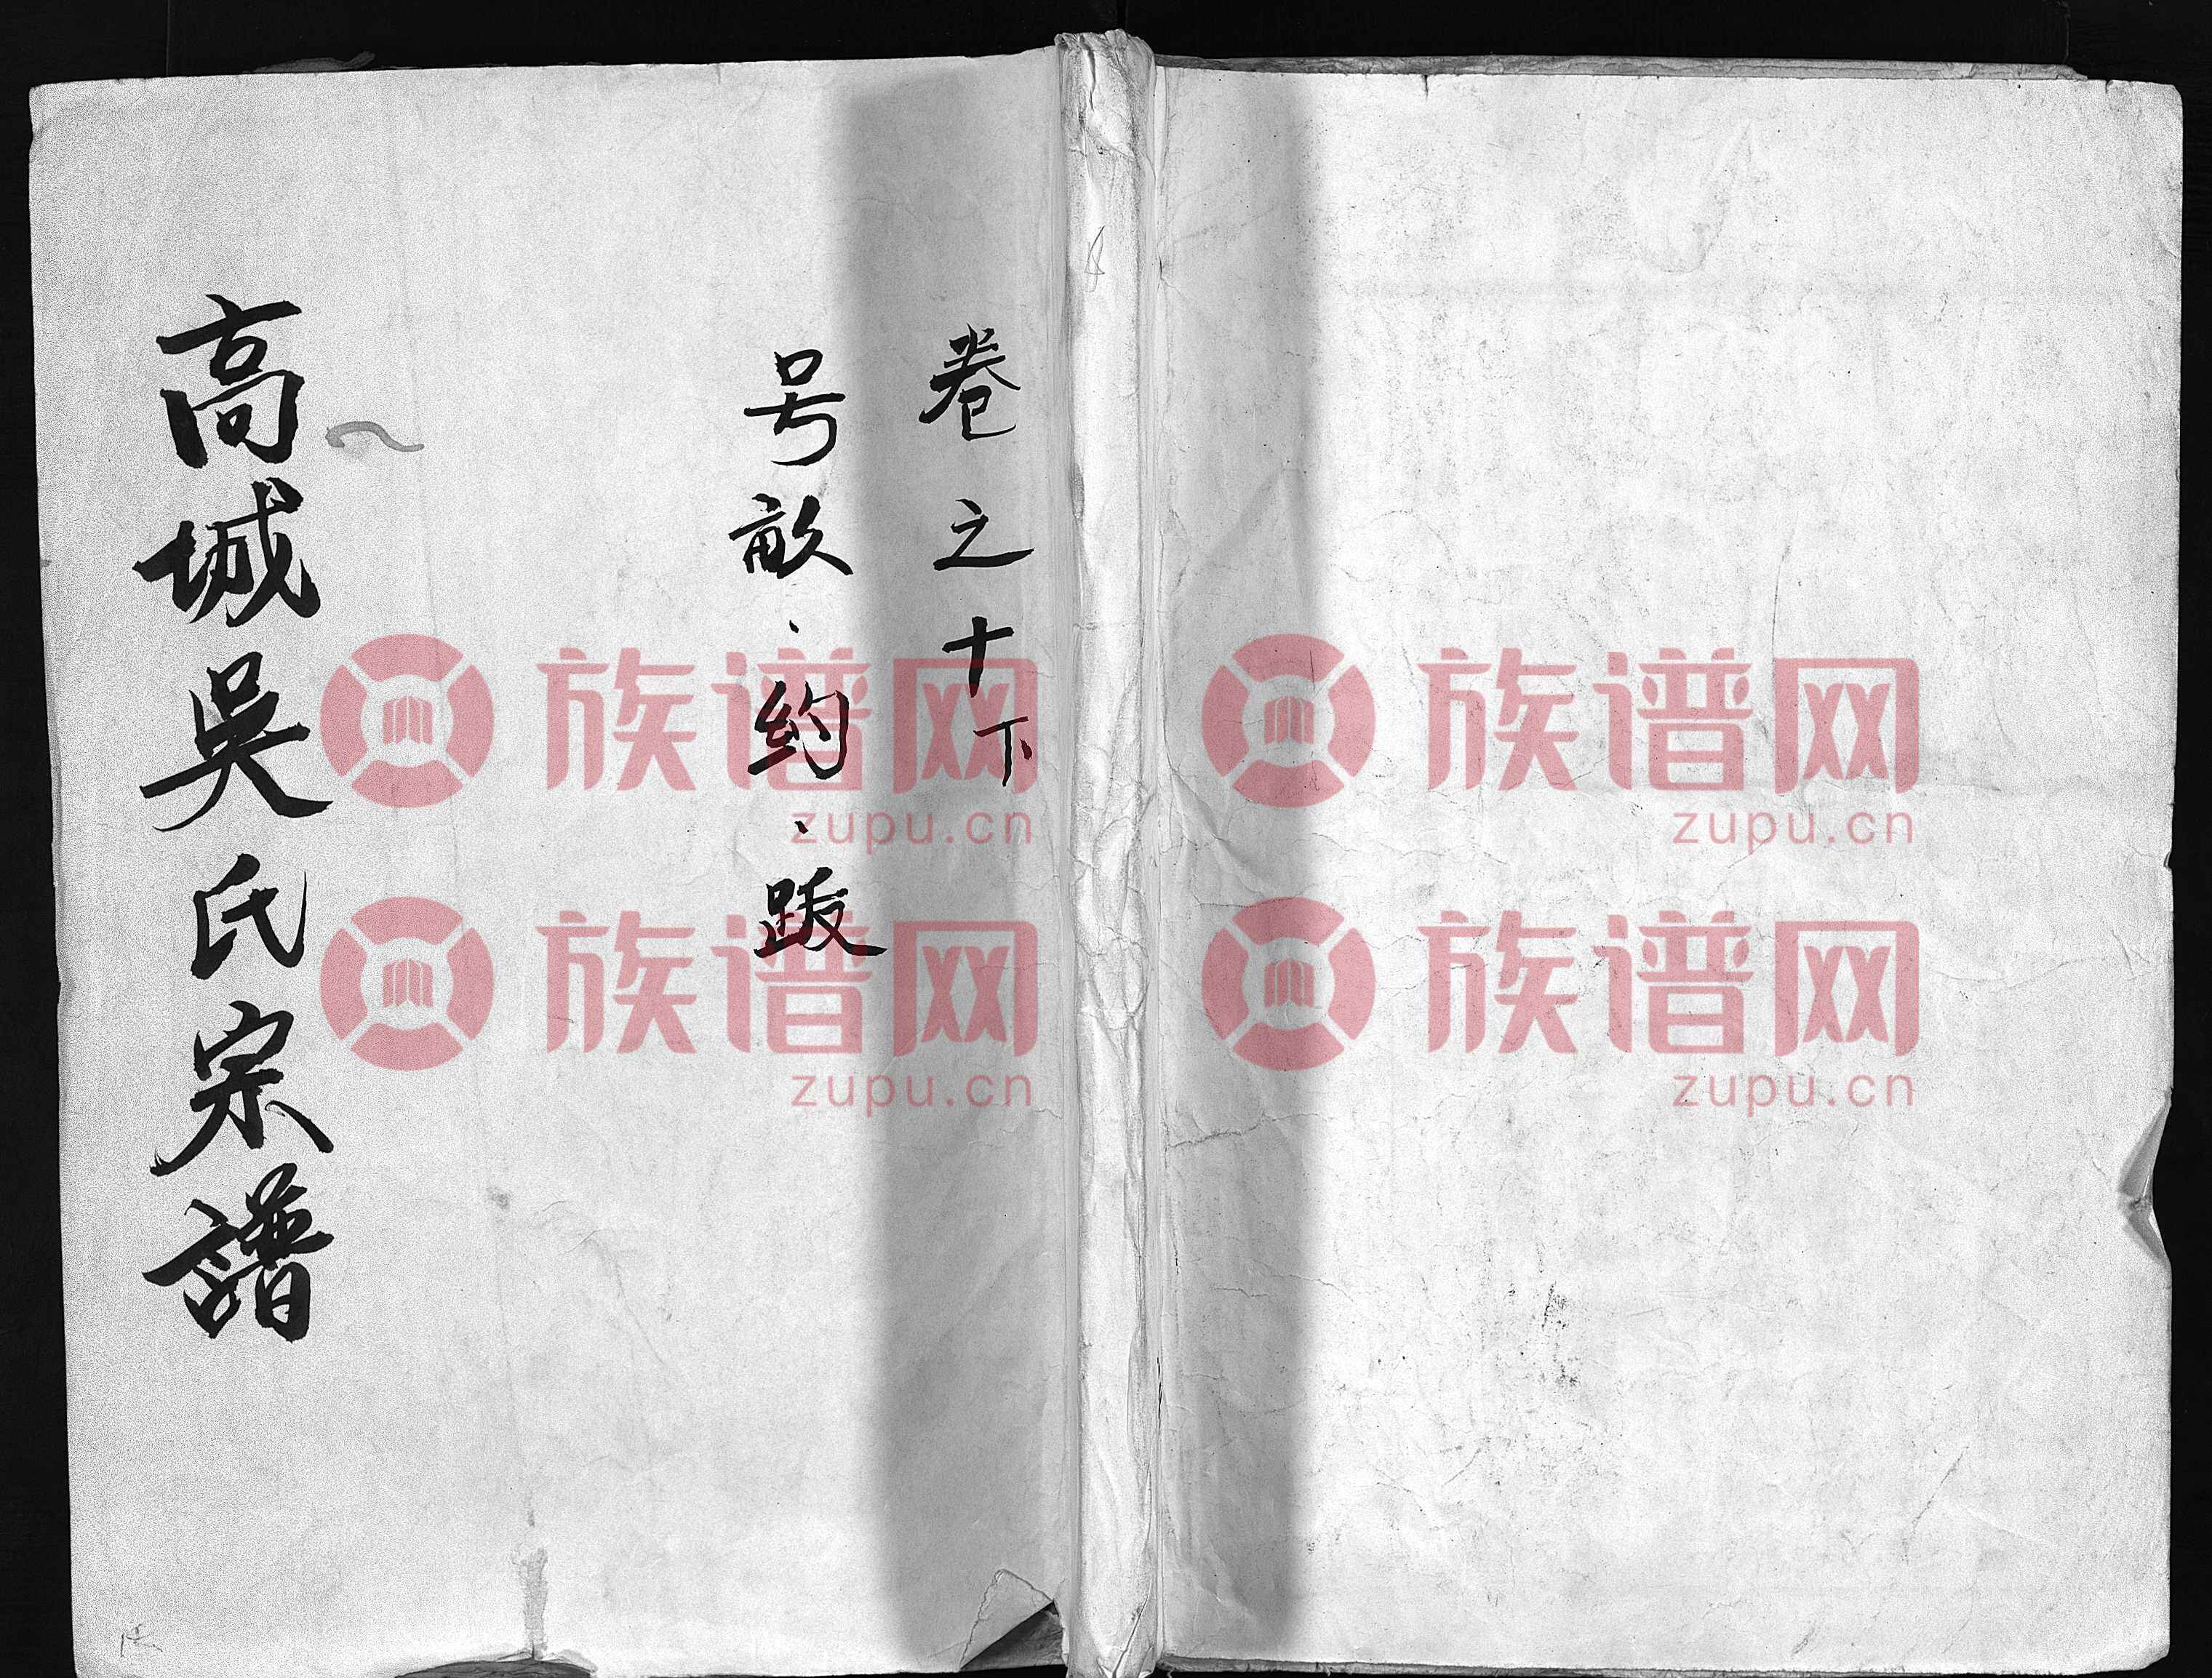 卷之十下
号畝、約、跋
高城吳氏宗譜
族谱网
zupu.cn
族谱网
zupu.cn
族谱网
zupu.cn
族谱网
zupu.cn